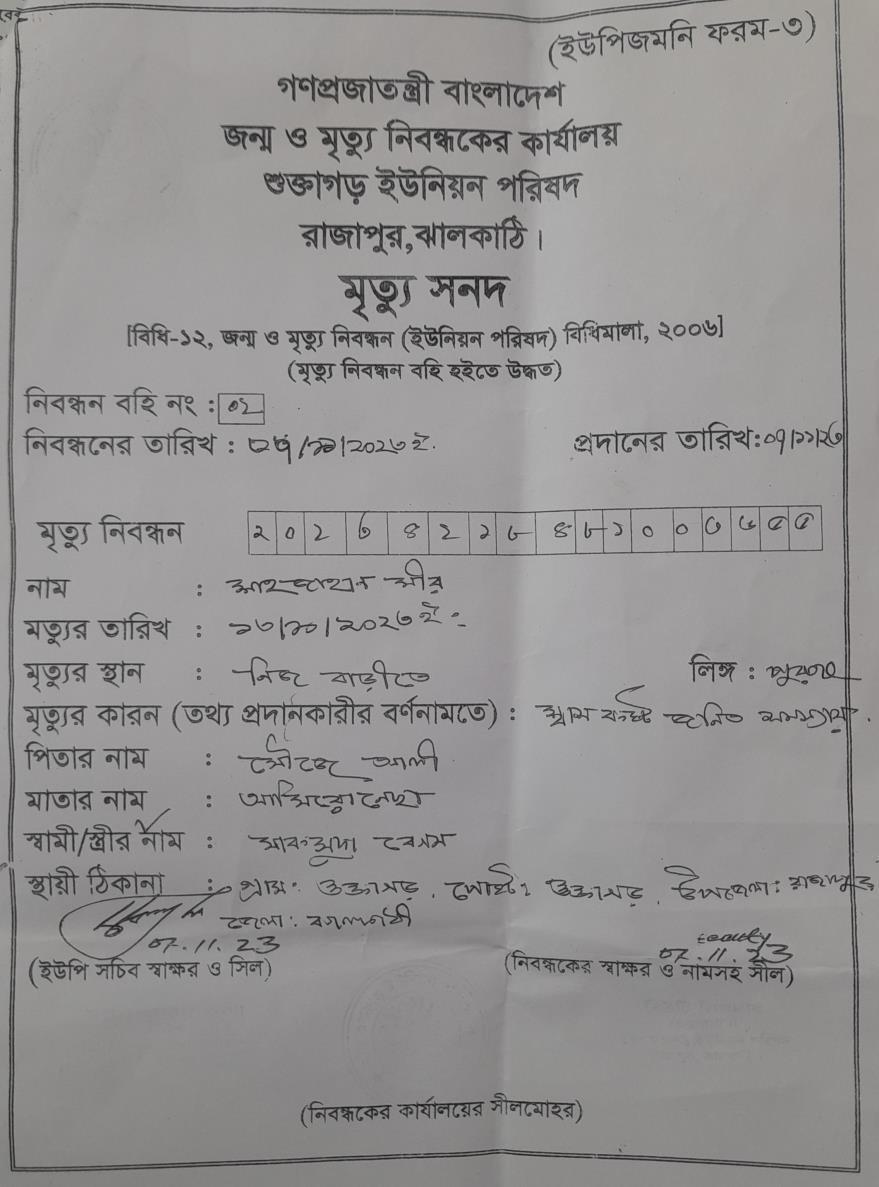 (ইউপিজমনি ফরম-৩)
গণপ্রজাতন্ত্রী বাংলাদেশ
জন্ম ও মৃত্যু নিবন্ধকের কার্যালয়
শুক্তাগড় ইউনিয়ন পরিষদ
রাজাপুর,ঝালকাঠি ।
মৃত্যু সনদ
[বিধি-১২, জন্ম ও মৃত্যু নিবন্ধন (ইউনিয়ন পরিষদ) বিধিমালা, ২০০৬]
(মৃত্যু নিবন্ধন বহি হইতে উদ্ধৃত)
নিবন্ধন বহি নং : ০২
নিবন্ধনের তারিখ : /২০২৩ ইং প্রদানের তারিখ:০৭/১১/২৩
মৃত্যু নিবন্ধন
নাম :
মৃত্যুর তারিখ : /১০/২০২৩ ইং
মৃত্যুর স্থান : নিজ বাড়ীতে লিঙ্গ : পুরুষ
মৃত্যুর কারন (তথ্য প্রদানকারীর বর্ণনামতে) : শ্বাস কষ্ট জনিত সমস্যায়.
পিতার নাম : আলী
মাতার নাম :
স্বামী/স্ত্রীর নাম : বেগম
স্থায়ী ঠিকানা : গ্রাম: শুক্তাগড়, পোষ্ট: শুক্তাগড়, উপজেলা: রাজাপুর
জেলা: ঝালকাঠী
07.11.23
07.11.23
(ইউপি সচিব স্বাক্ষর ও সিল) (নিবন্ধকের স্বাক্ষর ও নামসহ সীল)
(নিবন্ধকের কার্যালয়ের সীলমোহর)